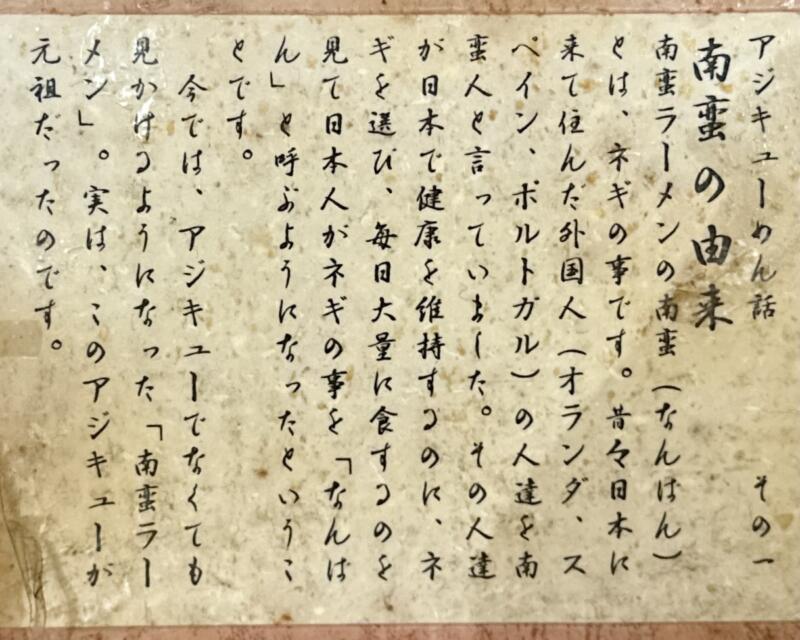 アジキューめん話　その一
南蛮の由来
南蛮ラーメンの南蛮(なんばん)
とは、ネギの事です。昔々日本に
来て住んだ外国人(オランダ、ス
ペイン、ポルトガル)の人達を南
蛮人と言っていました。その人達
が日本で健康を維持するのに、ネ
ギを選び、毎日大量に食するのを
見て日本人がネギの事を「なんば
ん」と呼ぶようになったというこ
とです。
今では、アジキューでなくても
見かけるようになった「南蛮ラー
メン」。実は、このアジキューが
元祖だったのです。